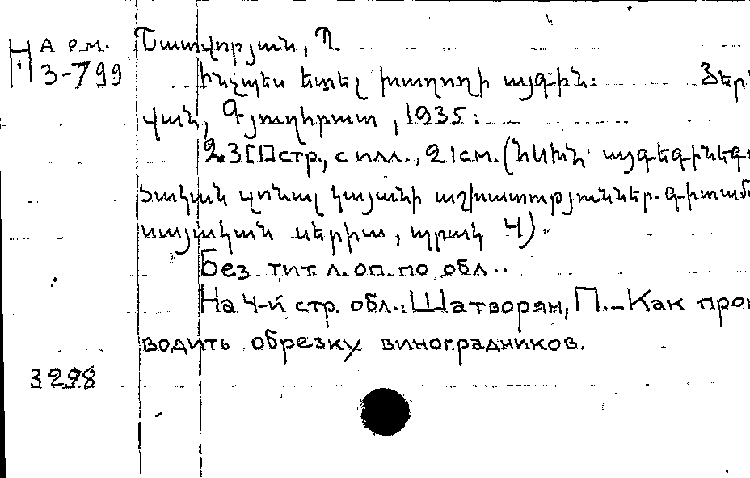 Н А рм.
3-799
Շատվորյան, Պ
Ինչպես ետել խաղողի այգին: Յերե
վան, Գյուղհրատ, 1935:
23[1]стр., с илл., 21см. (ԽՍԽՀ այգեգինեգո
ծական զոնալ կայանի աշխատություններ. գիտամ
սայական սերիա, պրակ 4)
Без тит. л. оп. по обл.
На 4-й стр. обл.: Шатворян, П. - Как прои
водить обрезку виноградников.
3298